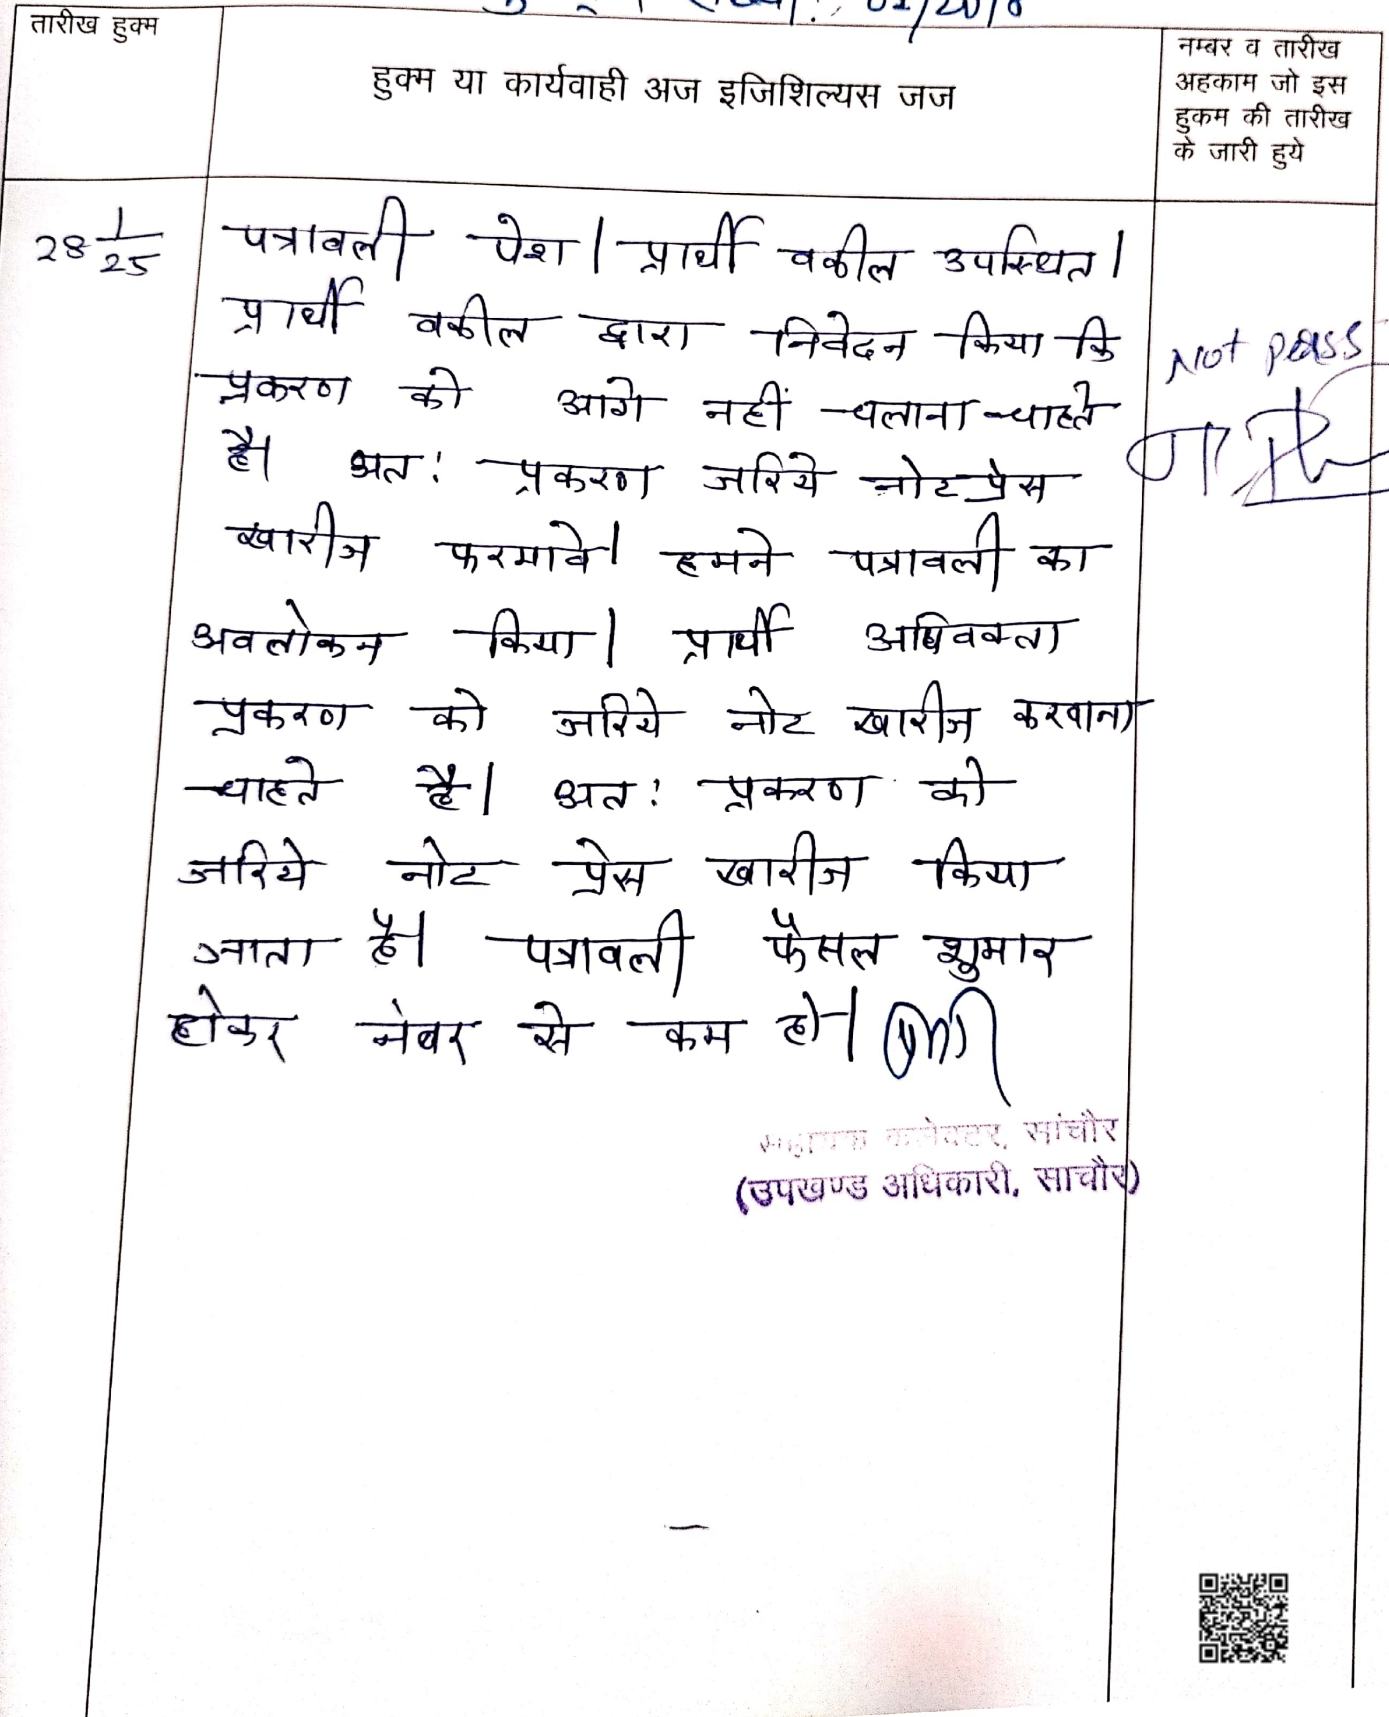 तारीख हुक्म
हुक्म या कार्यवाही अज इजिशिल्यस जज
नम्बर व तारीख
अहकाम जो इस
हुकम की तारीख
के जारी हुये
28 1/25
पत्रावली पेश। प्रार्थी वकील उपस्थित।
प्रार्थी वकील द्वारा निवेदन किया कि
प्रकरण को आगे नहीं चलाना चाहते
है। अत: प्रकरण जरिये नोट प्रेस
खारीज फरमावे। हमने पत्रावली का
अवलोकन किया। प्रार्थी अधिवक्ता
प्रकरण को जरिये नोट खारीज करवाना
चाहते है। अत: प्रकरण को
जरिये नोट प्रेस खारीज किया
जाता है। पत्रावली फैसल शुमार
होकर नंबर से कम हो।
Not press
सहायक कलेक्टर, सांचौर
(उपखण्ड अधिकारी, साचौर)